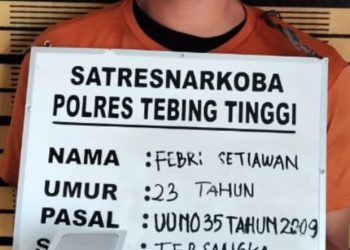 SATRESNARKOBA
POLRES TEBING TINGGI
NAMA : FEBRI SETIAWAN
UMUR : 23 TAHUN
PASAL : UU NO 35 TAHUN 2009
: TERSANGKA